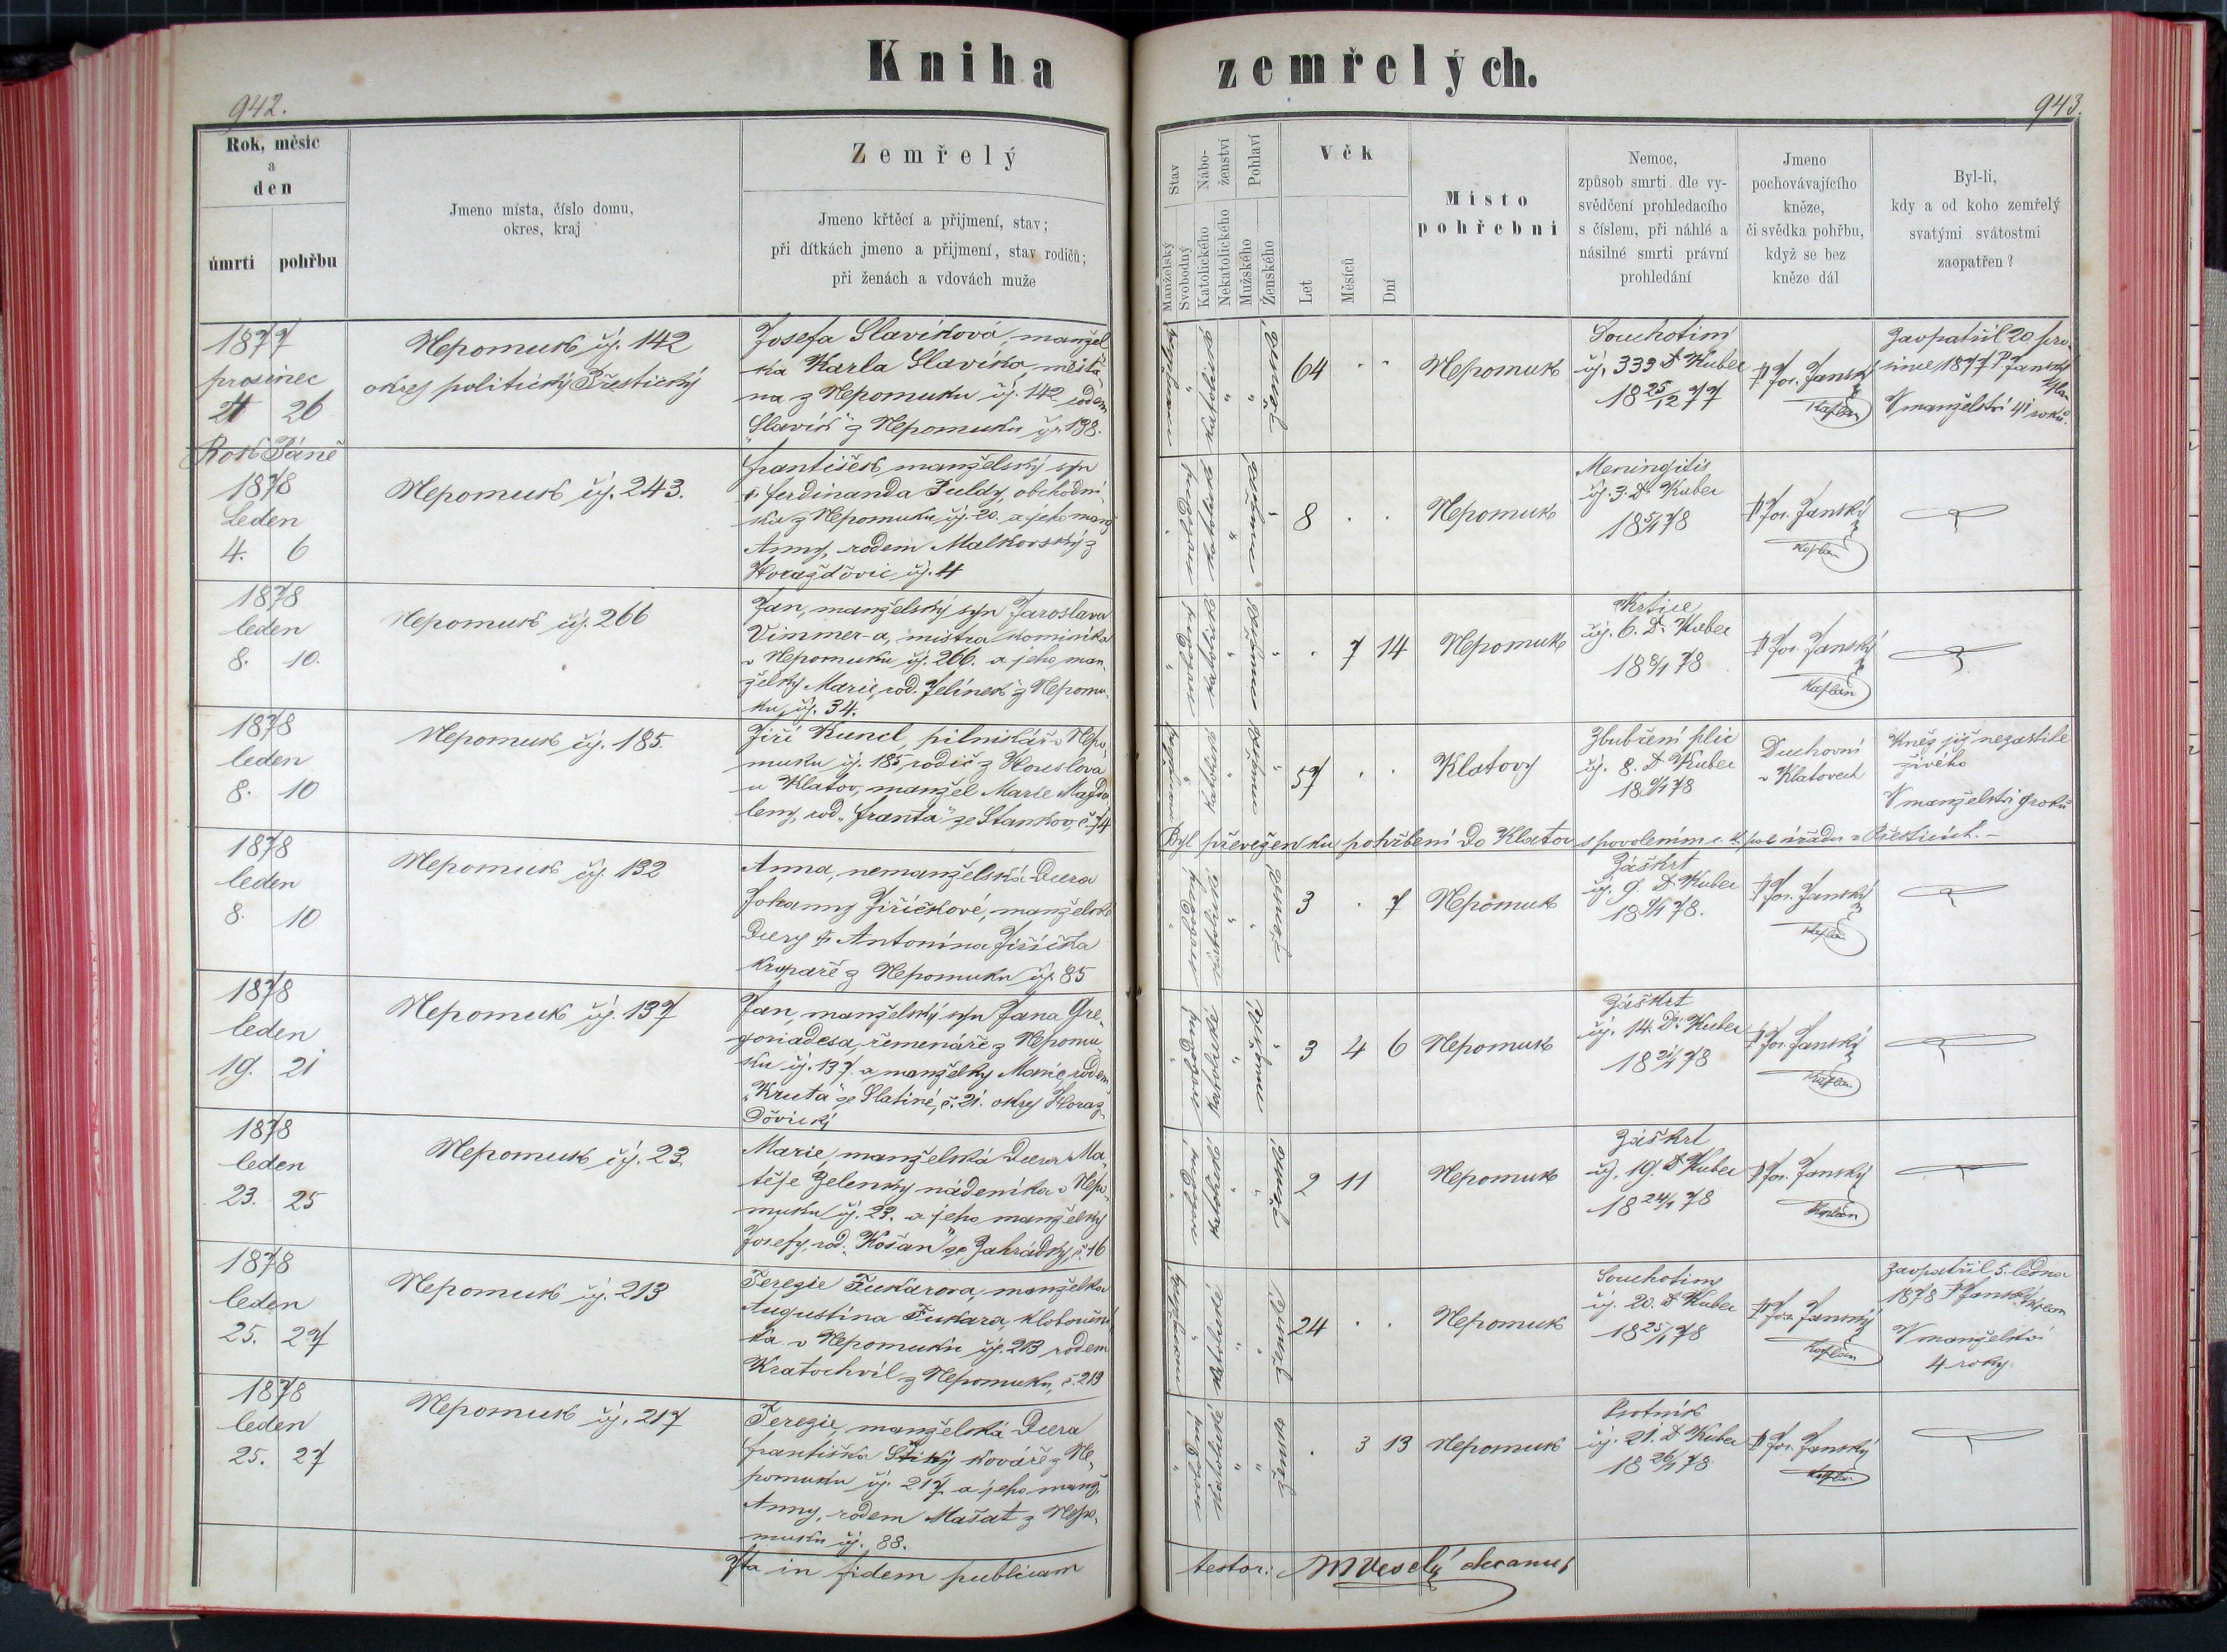 Kniha zemřelých.
942.
943.
Rok, měsíc
a
den
úmrtí pohřbu
Jmeno místa, číslo domu,
okres, kraj
Zemřelý
Jmeno křtěcí a příjmení, stav;
při dítkách jmeno a příjmení, stav rodičů;
při ženách a vdovách muže
Stav
Manželský
Svobodný
Nábo-
ženství
Katolického
Nekatolického
Pohlaví
Mužského
Ženského
Věk
Let
Měsíců
Dní
Místo
pohřební
Nemoc,
způsob smrti dle vy-
svědčení prohledacího
s číslem, při náhlé a
násilné smrti právní
prohledání
Jmeno
pochovávajícího
kněze,
či svědka pohřbu,
když se bez
kněze dál
Byl-li,
kdy a od koho zemřelý
svatými svátostmi
zaopatřen?
1877
prosinec
26
Nepomuk čj. 142
okres politický Přestický
Josefa Slavíková, manžel
ka Karla Slavíka, měšťa-
na z Nepomuku čj. 142 rodem
"Slavík" z Nepomuku čj. 138.
katolické
ženské
64
Nepomuk
Souchotiny
čj. 333 Dr Kuber
18 25/12 77
P. Jos. Janský
Kaplan
Zaopatřil 20. pro-
since 1877 P. Janský
V manželství 41 roků.
Rok Páně
1878
Leden
4. 6
Nepomuk čj. 243.
František, manželský syn
† Ferdinanda Fuldy, obchodní-
ka z Nepomuku čj. 20. a jeho manž
Anny, rodem Malkovský z
Horažďovic čj. 4
8
Nepomuk
Meningitis
čj. 3. Dr Kuber
18 5/1 78
P. Jos. Janský
Kaplan
1878
leden
8. 10.
Nepomuk čj. 266
Jan, manželský syn Jaroslava
Vimmer-a, mistra kominíka
v Nepomuku čj. 266. a jeho man-
želky Marie, rod. Jelínek z Nepomu-
ku, čj. 34.
7 14
Nepomuk
Krtice
čj. 6. Dr. Kuber
18 8/1 78
P. Jos. Janský
Kaplan
1878
leden
8. 10
Nepomuk čj. 185.
Jiří Kuncl, pilníkář v Nepo-
muku čj. 185, rodič z Houslova
u Klatov, manžel Marie Magda-
leny, rod. "Franta" ze Stankov, č. 74
57
Klatovy
Zbubření plic
čj. 8. Dr Kuber
18 9/1 78
Duchovní
v Klatovech
Kněz již nezastihl
živého
V manželství 9 roků
Byl převezen ku pohřbení do Klatov s povolením c. k. pol. úřadu v Přesticích.
1878
leden
8. 10
Nepomuk čj. 132
Anna, nemanželská dcera
Johanny Jiřičkové, manželské
dcery † Antonína Jiřička
krupaře z Nepomuku čj. 85
3 7
Nepomuk
Záškrt
čj. 9. Dr Kuber
18 9/1 78.
P. Jos. Janský
Kaplan
1878
leden
19. 21
Nepomuk čj. 137
Jan, manželský syn Jana Gre-
goriadesa, řemenáře z Nepomu-
ku čj. 137. a manželky Marie, rodem
"Kruta" ze Slatiné, č. 21. okres Horaž-
ďovický
3 4 6
Nepomuk
Záškrt
čj. 14. Dr. Kuber
18 21/1 78
P. Jos. Janský
Kaplan
1878
leden
23. 25
Nepomuk čj. 23.
Marie, manželská dcera Ma-
těje Zelenky nádeníka v Nepo-
muku čj. 23. a jeho manželky
Josefy, rod. "Košan" ze Zahrádky, č. 16
2 11
Nepomuk
Záškrt
čj. 19. Dr Kuber
18 24/1 78
P. Jos. Janský
Kaplan
1878
leden
25. 27
Nepomuk čj. 213
Terezie Fukárova, manželka
Augustina Fukara, klobouční-
ka v Nepomuku čj. 213 rodem
Kratochvíl z Nepomuku, č. 219
24
Nepomuk
Souchotiny
čj. 20. Dr Kuber
18 25/1 78
P. Jos. Janský
Kaplan
Zaopatřil 5. ledna
1878 P. Janský kaplan
V manželství
4 roky
1878
leden
25. 27
Nepomuk čj. 217
Terezie, manželská dcera
Františka Štiky kováře z Ne-
pomuku čj. 217 a jeho manž.
Anny, rodem Mašat z Nepo-
muku čj. 88.
3 13
Nepomuk
Psotník
čj. 21. Dr Kuber
18 26/1 78
P. Jos. Janský
Kaplan
Ita in fidem publicam
testor: MVeselý decanus